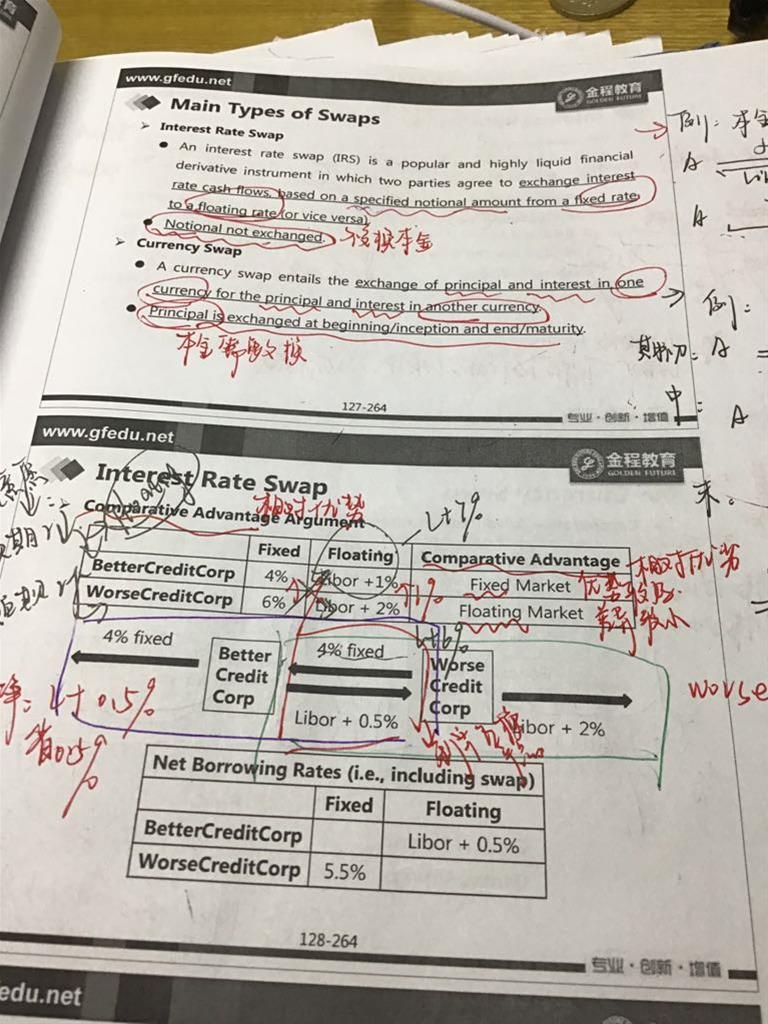 www.gfedu.net
金程教育
GOLDEN FUTURE
Main Types of Swaps
Interest Rate Swap
An interest rate swap (IRS) is a popular and highly liquid financial
derivative instrument in which two parties agree to exchange interest
rate cash flows, based on a specified notional amount from a fixed rate
to a floating rate (or vice versa)
Notional not exchanged.
本金
Currency Swap
A currency swap entails the exchange of principal and interest in one
currency for the principal and interest in another currency.
Principal is exchanged at beginning/inception and end/maturity.
本金需交换
例: 本金
A
A
例:
A
中:
A
末:
127-264
专业·创新·增值
www.gfedu.net
金程教育
GOLDEN FUTURE
Interest Rate Swap
Comparative Advantage Argument
相对优势
Fixed Floating Comparative Advantage
相对优势
BetterCreditCorp 4% Libor +1% Fixed Market
WorseCreditCorp 6% Libor + 2% Floating Market
1%
4% fixed
Better
Credit
Corp
4% fixed
Libor + 0.5%
Worse
Credit
Corp
Libor + 2%
worse
L+0.5%
省0.5%
Net Borrowing Rates (i.e., including swap)
Fixed Floating
BetterCreditCorp Libor + 0.5%
WorseCreditCorp 5.5%
128-264
专业·创新·增值
edu.net